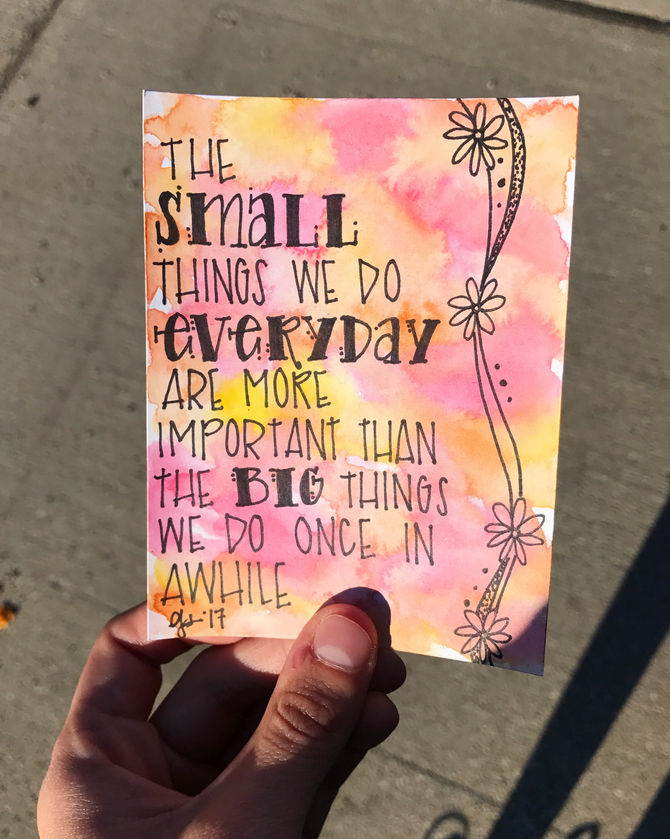 THE
SMALL
THINGS WE DO
EVERYDAY
ARE MORE
IMPORTANT THAN
THE BIG THINGS
WE DO ONCE IN
AWHILE
'17